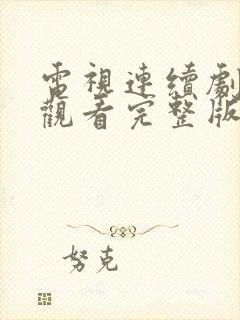 電視連續劇
觀看完整版
努克